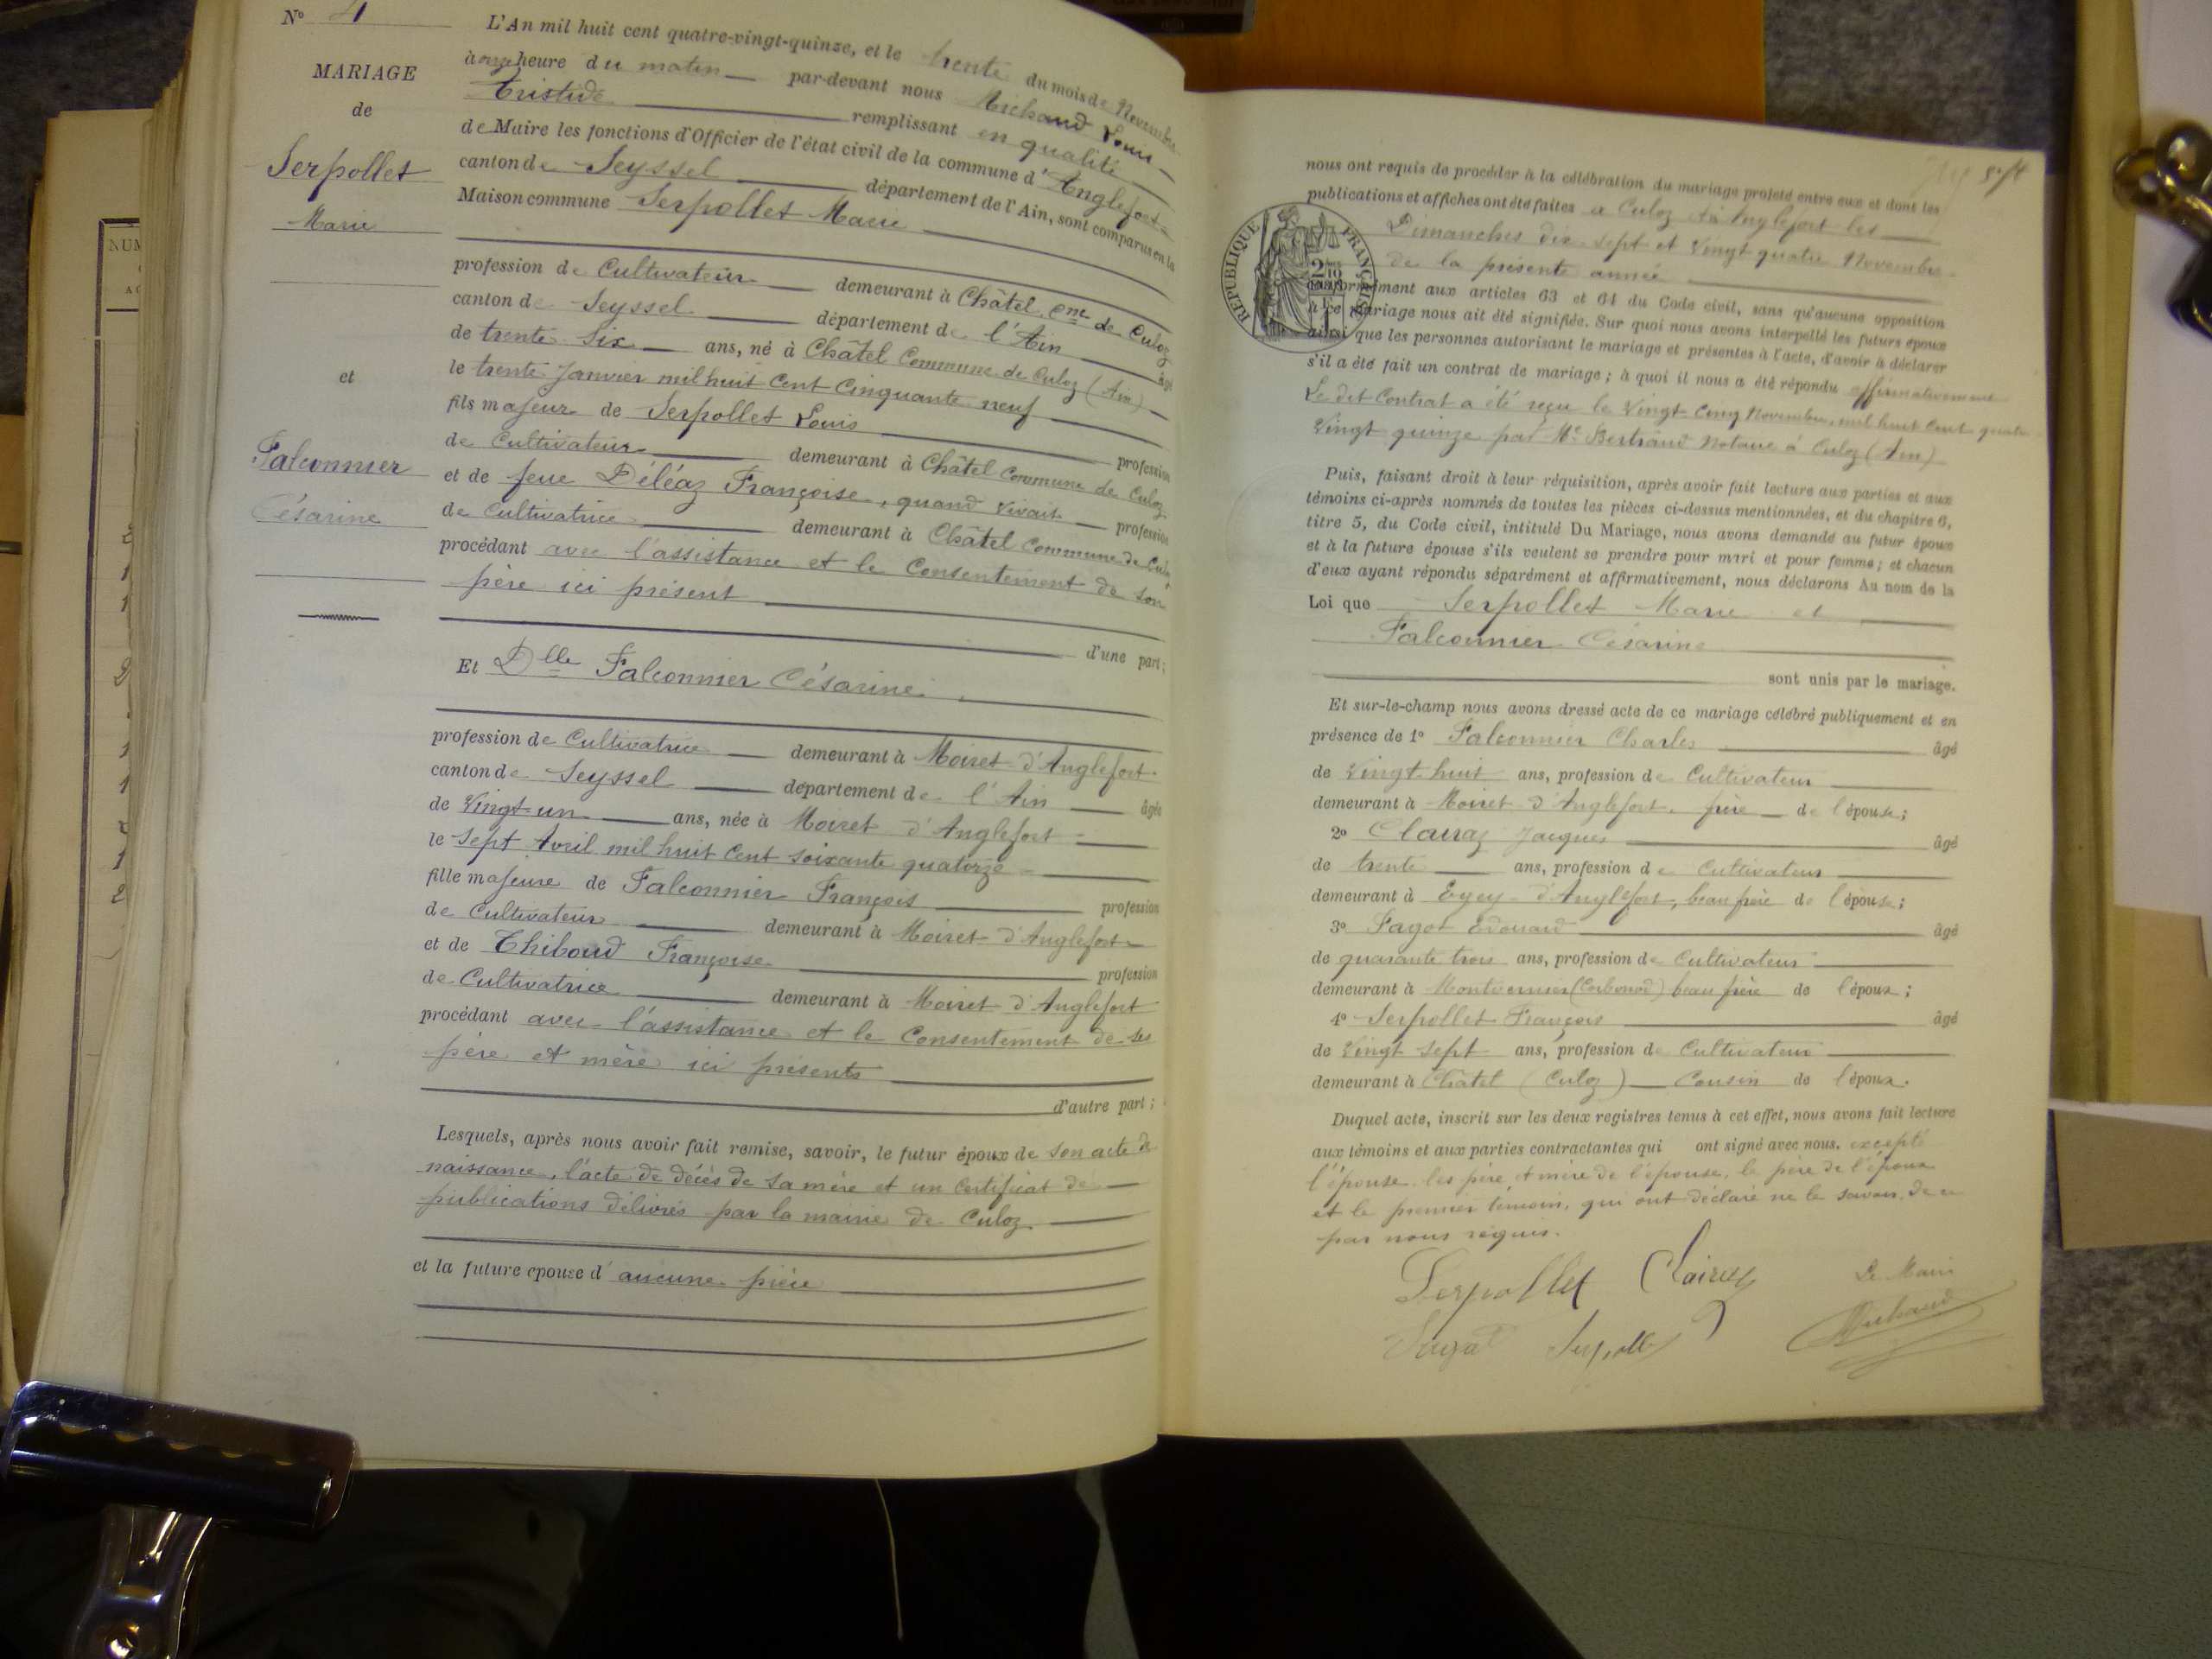 N° 4
MARIAGE
de
Serpollet
Marie
et
Falconnier
Césarine
L'An mil huit cent quatre-vingt-quinze, et le trente du mois de Novembre
à onze heure du matin par-devant nous Michaud Louis
Aristide remplissant en qualité
de Maire les fonctions d'Officier de l'état civil de la commune d'Anglefort
canton de Seyssel département de l'Ain, sont comparus en la
Maison commune Serpollet Marie
profession de Cultivateur demeurant à Châtel Cne de Culoz
canton de Seyssel département de l'Ain âgé
de trente six ans, né à Châtel Commune de Culoz (Ain)
le trente Janvier mil huit Cent Cinquante neuf
fils majeur de Serpollet Louis profession
de Cultivateur demeurant à Châtel Commune de Culoz
et de feue Déléaz Françoise, quand vivait profession
de Cultivatrice demeurant à Châtel Commune de Culoz
procédant avec l'assistance et le Consentement de son
père ici présent
d'une part;
Et Dlle Falconnier Césarine
profession de Cultivatrice demeurant à Moiret d'Anglefort
canton de Seyssel département de l'Ain âgée
de Vingt-un ans, née à Moiret d'Anglefort
le sept Avril mil huit Cent soixante quatorze
fille majeure de Falconnier François profession
de Cultivateur demeurant à Moiret d'Anglefort
et de Thiboud Françoise profession
de Cultivatrice demeurant à Moiret d'Anglefort
procédant avec l'assistance et le Consentement de ses
père et mère ici présents
d'autre part;
Lesquels, après nous avoir fait remise, savoir, le futur époux de son acte de
naissance, l'acte de décès de sa mère et un Certificat de
publications délivrés par la mairie de Culoz.
et la future épouse d'aucune pièce
nous ont requis de procéder à la célébration du mariage projeté entre eux et dont les
publications et affiches ont été faites a Culoz et à Anglefort les
Dimanches dix sept et Vingt quatre Novembre
de la présente année
conformément aux articles 63 et 64 du Code civil, sans qu'aucune opposition
à ce mariage nous ait été signifiée. Sur quoi nous avons interpellé les futurs époux
ainsi que les personnes autorisant le mariage et présentes à l'acte, d'avoir à déclarer
s'il a été fait un contrat de mariage; à quoi il nous a été répondu affirmativement
Le dit Contrat a été reçu le Vingt Cinq Novembre, mil huit Cent quatre
Vingt quinze par Me Bertrand Notaire à Culoz (Ain)
RÉPUBLIQUE FRANÇAISE
Puis, faisant droit à leur réquisition, après avoir fait lecture aux parties et aux
témoins ci-après nommés de toutes les pièces ci-dessus mentionnées, et du chapitre 6,
titre 5, du Code civil, intitulé Du Mariage, nous avons demandé au futur époux
et à la future épouse s'ils veulent se prendre pour mari et pour femme; et chacun
d'eux ayant répondu séparément et affirmativement, nous déclarons Au nom de la
Loi que Serpollet Marie et
Falconnier Césarine
sont unis par le mariage.
Et sur-le-champ nous avons dressé acte de ce mariage célébré publiquement et en
présence de 1° Falconnier Charles âgé
de Vingt huit ans, profession de Cultivateur
demeurant à Moiret d'Anglefort, frère de l'épouse;
2° Clairaz Jacques âgé
de trente ans, profession de Cultivateur
demeurant à Eyey d'Anglefort, beau frère de l'épouse;
3° Fagot Edouard âgé
de quarante trois ans, profession de Cultivateur
demeurant à (Corbonod) beau frère de l'époux;
4° Serpollet François âgé
de Vingt sept ans, profession de Cultivateur
demeurant à Châtel (Culoz) Cousin de l'époux.
Duquel acte, inscrit sur les deux registres tenus à cet effet, nous avons fait lecture
aux témoins et aux parties contractantes qui ont signé avec nous, excepté
l'épouse, les père et mère de l'épouse, le père de l'époux
et le premier témoin, qui ont déclaré ne le savoir, de ce
par nous requis.
Serpollet Clairaz Le Maire
Fagot Serpollet Michaud